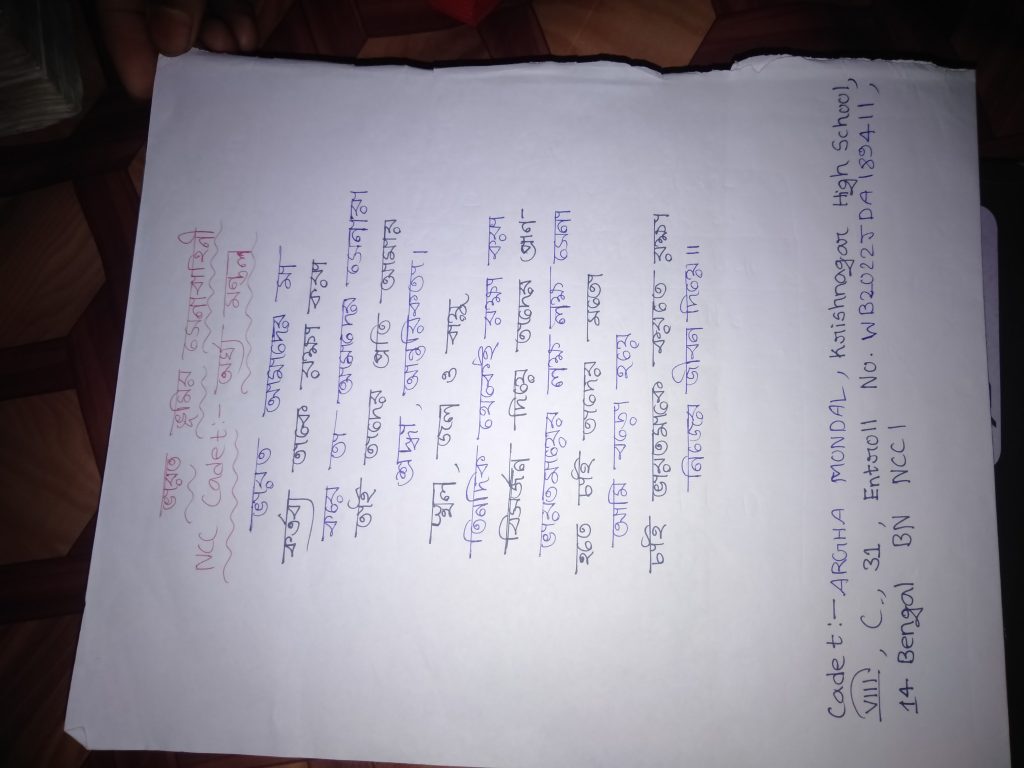 ভারত ভূমির সেনাবাহিনী
NCC Cadet:- অর্ঘ্য মণ্ডল
ভারত আমাদের মা-
কর্তব্য তাকে রক্ষা করা
করে তা আমাদের সেনারা
তাই তাদের প্রতি আমার
শ্রদ্ধা, আন্তরিকতা।
স্থল, জল ও বায়ু
তিনদিক থেকেই রক্ষা করে
বিসর্জন দিয়ে তাদের প্রাণ-
ভারতমাতার লাখো লাখো সেনা
হতে চাই তাদের মতো
আমি বড়ো হয়ে
চাই ভারতমাতাকে করতে রক্ষা
নিজের জীবন দিয়ে॥
Cadet:- ARGHA MONDAL, Krishnagar High School,
VIII, C, 31, Entroll No. WB2022JDA189411,
14 Bengal BN NCC।